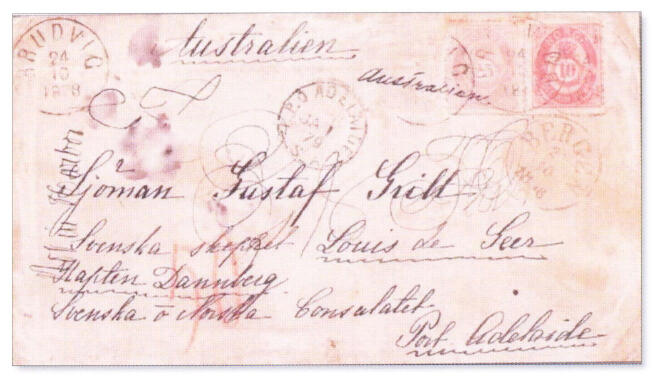 BRUDVIG
24
10
1878
Australien
Australien
10
G.P.O ADELAIDE
JA
79
BERGEN
Sjöman Gustaf Grill
Svenska skeppet Louis de Geer
Kapten Dannberg
Svenska o Norska Consulatet
Port Adelaide